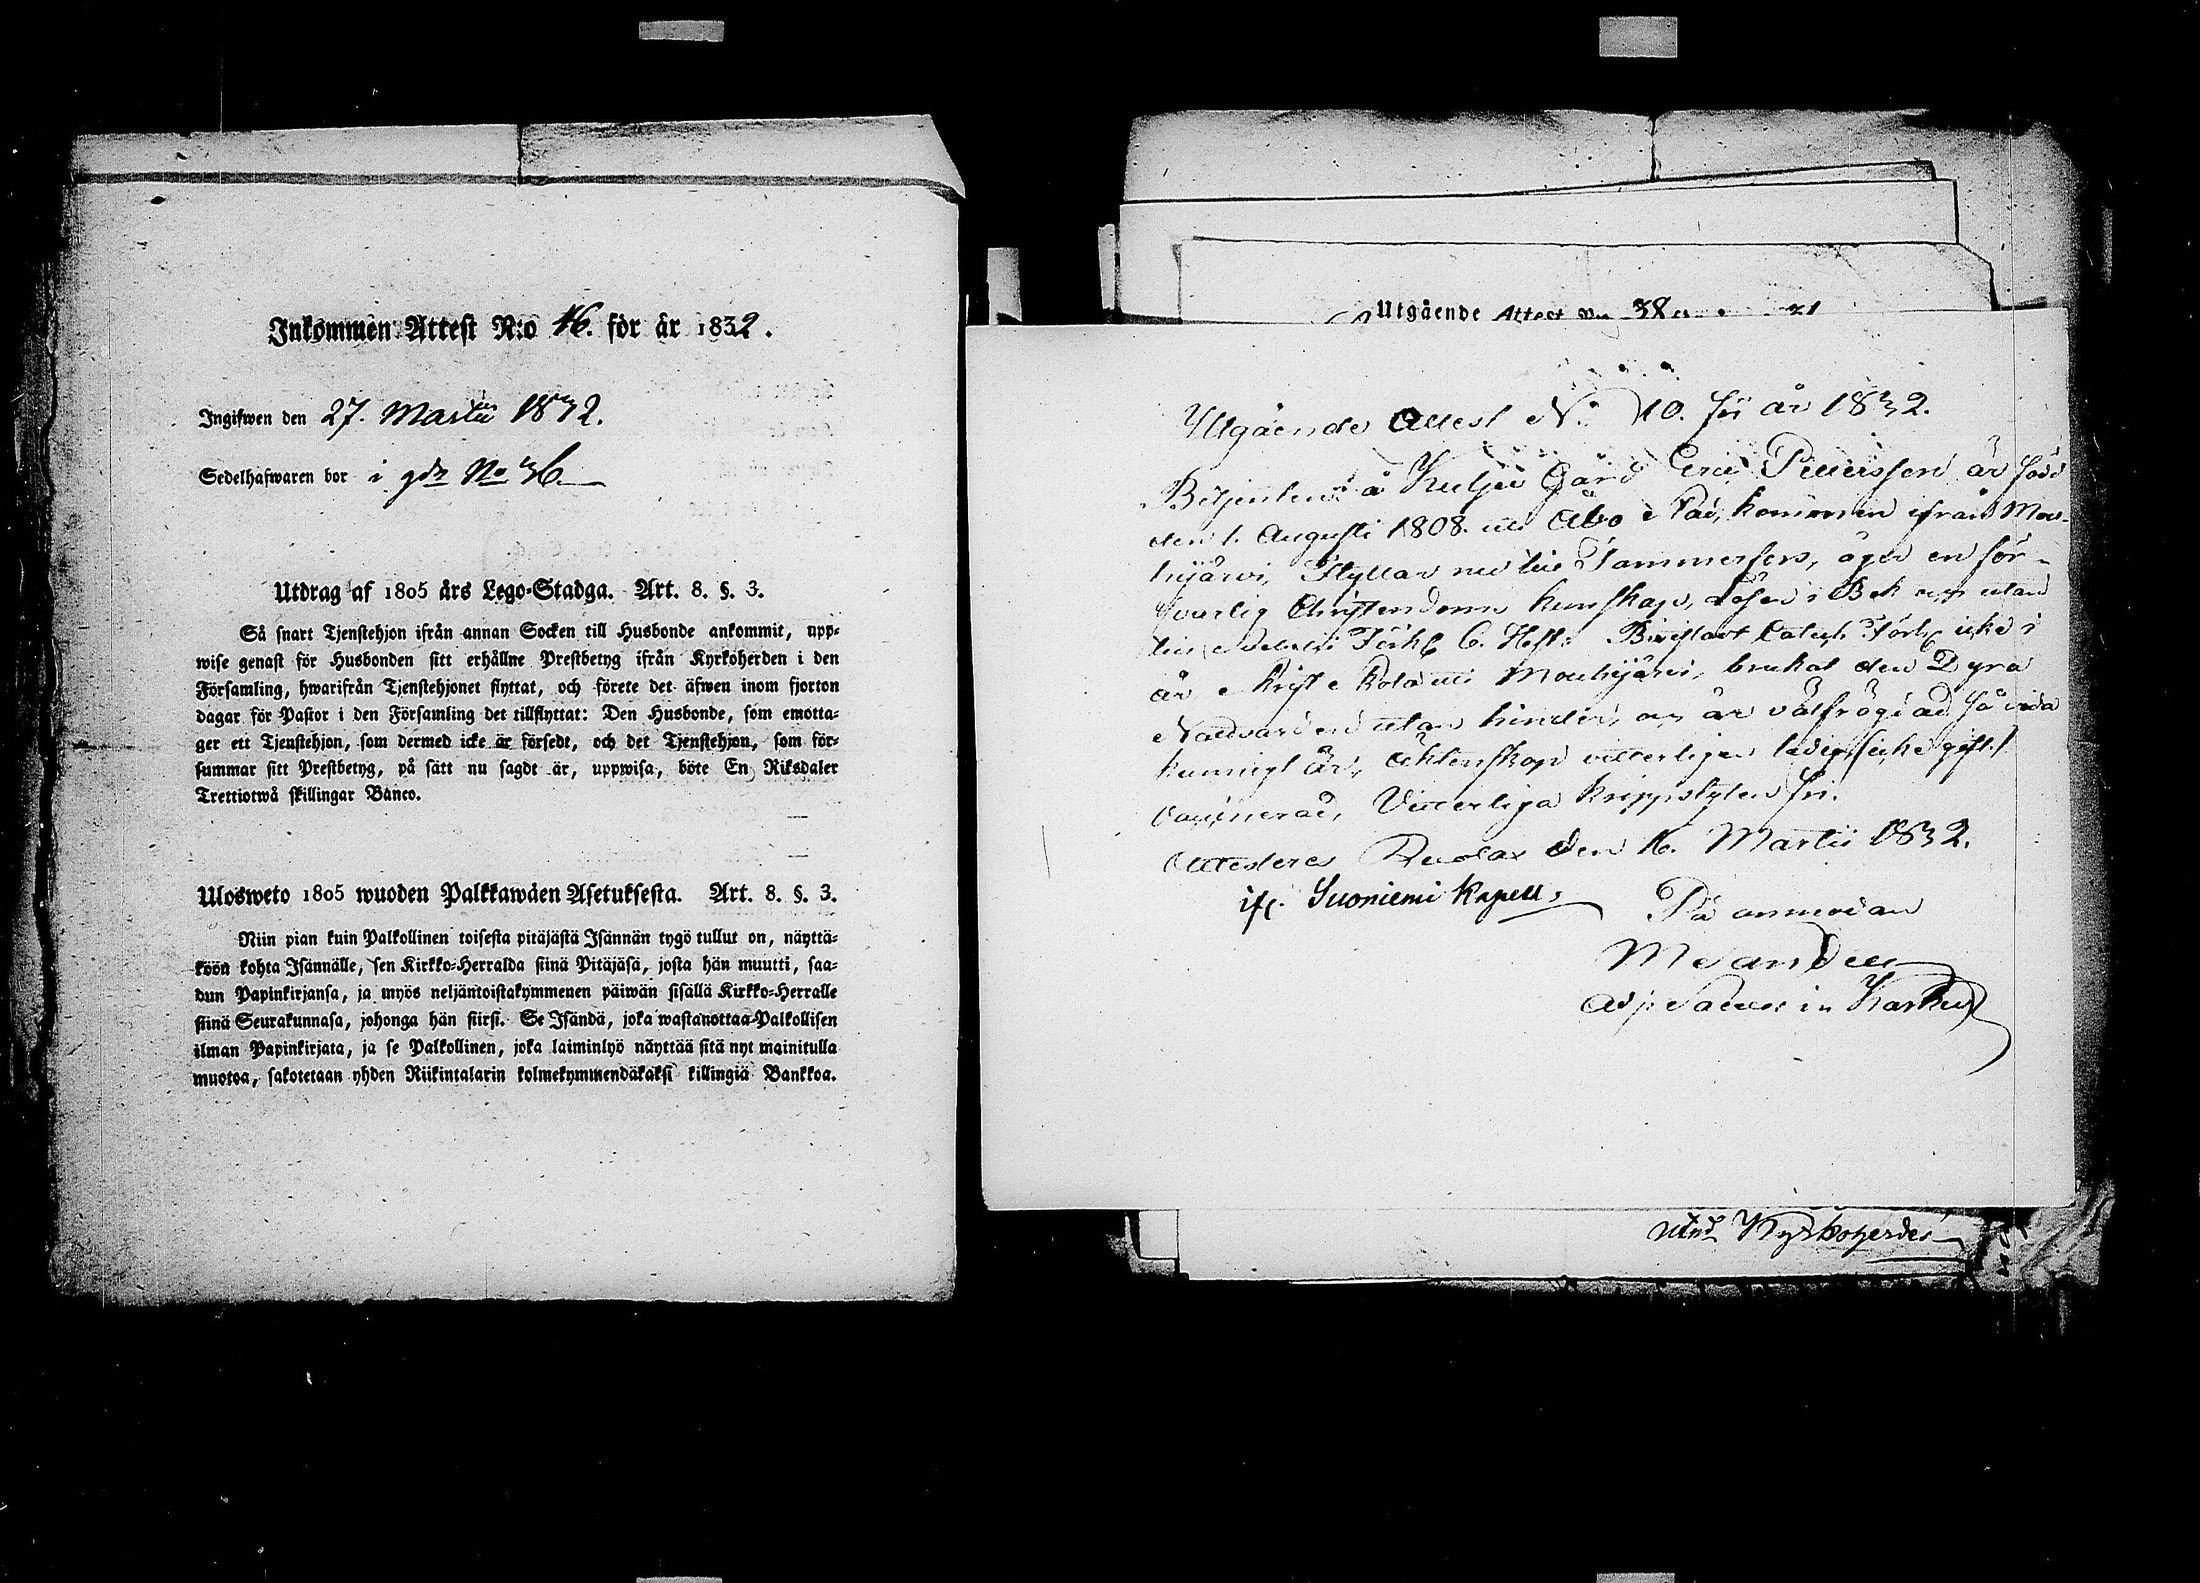 Inkommen Attest N:o 16. för år 1832.
Ingifwen den 27. Martii 1832.
Sedelhafwaren bor i gdn No 36
Utdrag af 1805 års Lego-Stadga. Art. 8. §. 3.
Så snart Tjenstehjon ifrån annan Socken till Husbonde ankommit, upp-
wise genast för Husbonden sitt erhållne Prestbetyg ifrån Kyrkoherden i den
Församling, hwarifrån Tjenstehjonet flyttat, och förete det äfwen inom fjorton
dagar för Pastor i den Församling det tillflyttat: Den Husbonde, som emotta-
ger ett Tjenstehjon, som dermed icke är försedt, och det Tjenstehjon, som för-
summar sitt Prestbetyg, på sätt nu sagdt är, uppwisa, böte En Riksdaler
Trettiotwå skillingar Banco.
Ulosweto 1805 wuoden Palkkawäen Asetuksesta. Art. 8. §. 3.
Niin pian kuin Palkollinen toisesta pitäjästä Isännän tygö tullut on, näyttä-
köön kohta Isännälle, sen Kirkko-Herralda siinä Pitäjäsä, josta hän muutti, saa-
dun Papinkirjansa, ja myös neljäntoistakymmenen päiwän sisällä Kirkko-Herralle
siinä Seurakunnasa, johonga hän siirsi. Se Isändä, joka wastanottaa Palkollisen
ilman Papinkirjata, ja se Palkollinen, joka laiminlyö näyttää sitä nyt mainitulla
muotoa, sakotetaan yhden Riikintalarin kolmekymmendäkaksi killingiä Bankkoa.
Utgående Attest 38 31
Utgående Attest No 10. för år 1832.
Betjenten å Kulju Gård Eric Pettersson är född
den 1. Augusti 1808. uti Åbo Stad, kommen ifrån Mou-
hijärvi, flyttar nu till Tammerfors, äger en för-
svarlig Christendoms kunskap, Läser i Bok
Förkl 6. Hft: Bivistat Catech. Förh. icke i
år uti Mouhijärvi, brukat den Dyra
Nattvarden utan hinder, och är välfrägdad så vida
kunnigt är, till Äktenskap vitterligen ledig icke gift
Vaccinerad, Vitterliga Krigsstyten fri.
Attesteras den 16. Martii 1832.
ifr. Suoniemi Kapell
På anmodan
Melander
Adj: Sacell in Karkku
Kyrkoherde